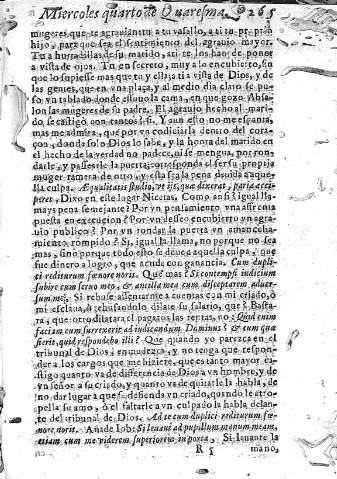 Miercoles quarto de Quaresma. 265
mugeres que te agrauian tu a tu vasallo, a ai tu proprio
hijo, para que sea el sentimiento del agrauio mayor.
Tu a hurtadillas de su marido, a ti te los han de poner
a vista de ojos. Tu en secreto, muy a lo encubierto, sin
que lo supiesse mas que tu y ella; a ti a vista de Dios, y de
las gentes, que en vna plaça, y al medio dia claro se pu-
so vn tablado donde estuuo la cama, en que gozo Absa-
lon las mugeres de su padre. El agrauio hecho al mari-
do se castigò con tantos? si. Y aun esto no me espanta,
mas me admira, que por vn codiciarla dentro del cora-
çon, donde solo Dios lo sabe, y la honta del marido en
el hecho de la verdad no padece, ni se mengua, por ron-
darle, y passearle la puerta; corresponda el ser su propria
muger ramera de otro, y esta sea la pena deuida a aque-
lla culpa. Æqualitatis studio, vt ijs, quæ dixerat, paria acci-
peret, Dixo en este lugar Nicetas. Como assi? igual lla-
mays pena semejante? Por vn pensamiento vna afrenta
puesta en execucion? Por vn desseo encubierto vn agra-
uio publico? Por vn rondar la puerta vn amanceba-
miento rompido? Si, igual la llama, no porque no sea
mas, sino porque todo esto se deue a aquella culpa, que
fue dinero a logro, que acude con ganancia. Cum dupli-
ci rediturum fœnore noris. Què mas? Si contempsi iudicium
subire cum seruo meo, & ancilla mea cum disceptarent aduer-
sum me, Si rehusè assentarme a cuentas con mi criado, ò
mi esclaua, ò rehusandolo dilate su salario, que? Basta-
ra, que otro dilatara el pagaros las rentas, no: Quid enim
faciam cum surrexerit ad iudicandum Dominus? & cum quæ-
sierit, quid respondebo illi? Que quando yo parezca en el
tribunal de Dios, enmudezca, y no tenga que respon-
der a los cargos que me hiziere, que es tanto mayor cas-
tigo quanto va de differencia de Dios a vn hombre, y de
vn señor a su criado, y quanto va de quitarle la habla, de
no dar lugar a que se defienda vn criado, quando le atro-
pella su amo, ò el faltarle a vn culpado la habla delan-
te del tribunal de Dios. Adeo cum duplici rediturum fœ-
nore noris. Añade Iob: Si leuaui ad pupillum manum meam,
etiam cum me viderem superiorem in porta. Si leuante la
R 5 mano,